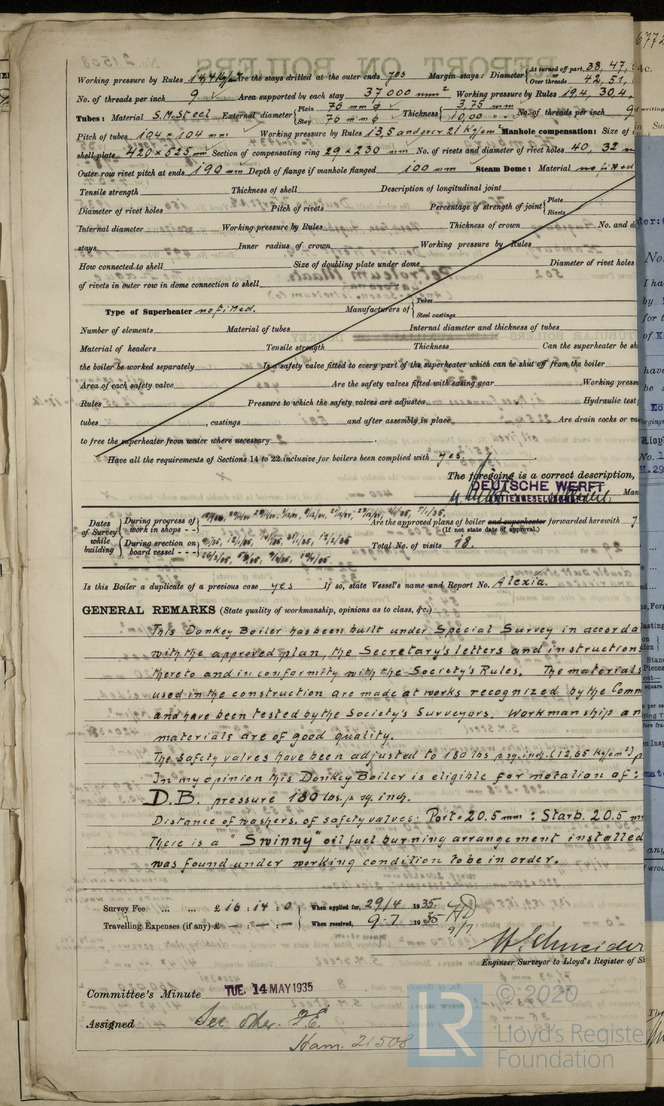 Working pressure by Rules 14,4 Kg/cm² Are the stays drilled at the outer ends yes Margin stays: Diameter { At turned off part, 38, 47, or Over threads 42, 51,
No. of threads per inch 9 Area supported by each stay 37000 mm² Working pressure by Rules 19.4, 30.4,
Tubes: Material S.M. Steel External diameter { Plain 76 mm ⌀ Stay 76 mm ⌀ Thickness { 3,75 mm 10,00 No. of threads per inch 9
Pitch of tubes 104 × 104 mm Working pressure by Rules 13,5 and over 21 Kg/cm² Manhole compensation: Size of
shell plate 420 × 525 mm Section of compensating ring 29 × 230 mm No. of rivets and diameter of rivet holes 40, 32 m
Outer row rivet pitch at ends 190 mm Depth of flange if manhole flanged 100 mm Steam Dome: Material no fitted
Tensile strength Thickness of shell Description of longitudinal joint
Diameter of rivet holes Pitch of rivets Percentage of strength of joint { Plate Rivets
Internal diameter Working pressure by Rules Thickness of crown No. and d
stays Inner radius of crown Working pressure by Rules
How connected to shell Size of doubling plate under dome Diameter of rivet holes
of rivets in outer row in dome connection to shell
Type of Superheater no fitted. Manufacturers of { Tubes Steel castings
Number of elements Material of tubes Internal diameter and thickness of tubes
Material of headers Tensile strength Thickness Can the superheater be sh
the boiler be worked separately Is a safety valve fitted to every part of the superheater which can be shut off from the boiler
Area of each safety valve Are the safety valves fitted with easing gear Working press
Rules Pressure to which the safety valves are adjusted Hydraulic test
tubes , castings and after assembly in place Are drain cocks or va
to free the superheater from water where necessary
Have all the requirements of Sections 14 to 22 inclusive for boilers been complied with yes.
The foregoing is a correct description,
DEUTSCHE WERFT
Man
Dates of Survey while building { During progress of work in shops - - Are the approved plans of boiler and superheater forwarded herewith
(If not state date of approval.)
During erection on board vessel - - - Total No. of visits 18.
Is this Boiler a duplicate of a previous case yes If so, state Vessel's name and Report No. Alexia.
GENERAL REMARKS (State quality of workmanship, opinions as to class, &c.)
This Donkey Boiler has been built under Special Survey in accorda
with the approved plan, the Secretary's letters and instructions
thereto and in conformity with the Society's Rules. The materials
used in the construction are made at works recognized by the Comm
and have been tested by the Society's Surveyors. Workmanship an
materials are of good quality.
The safety valves have been adjusted to 180 lbs p. sq. inch. (12,65 Kg/cm²)
In my opinion this Donkey Boiler is eligible for notation of:
D.B. pressure 180 lbs. p. sq. inch.
Distance of washers of safety valves: Port = 20.5 mm: Starb. 20.5 m
There is a "Swinny" oil fuel burning arrangement installed
was found under working condition to be in order.
Survey Fee ... ... £ 16 : 14 : 0 When applied for, 29/4 1935.
Travelling Expenses (if any) £ — : — : — When received, 9.7 1935
W. Schneider
Engineer Surveyor to Lloyd's Register of S
Committee's Minute TUE. 14 MAY 1935
Assigned See other F.E.
Ham. 21508
© 2020
LR Lloyd's Register Foundation